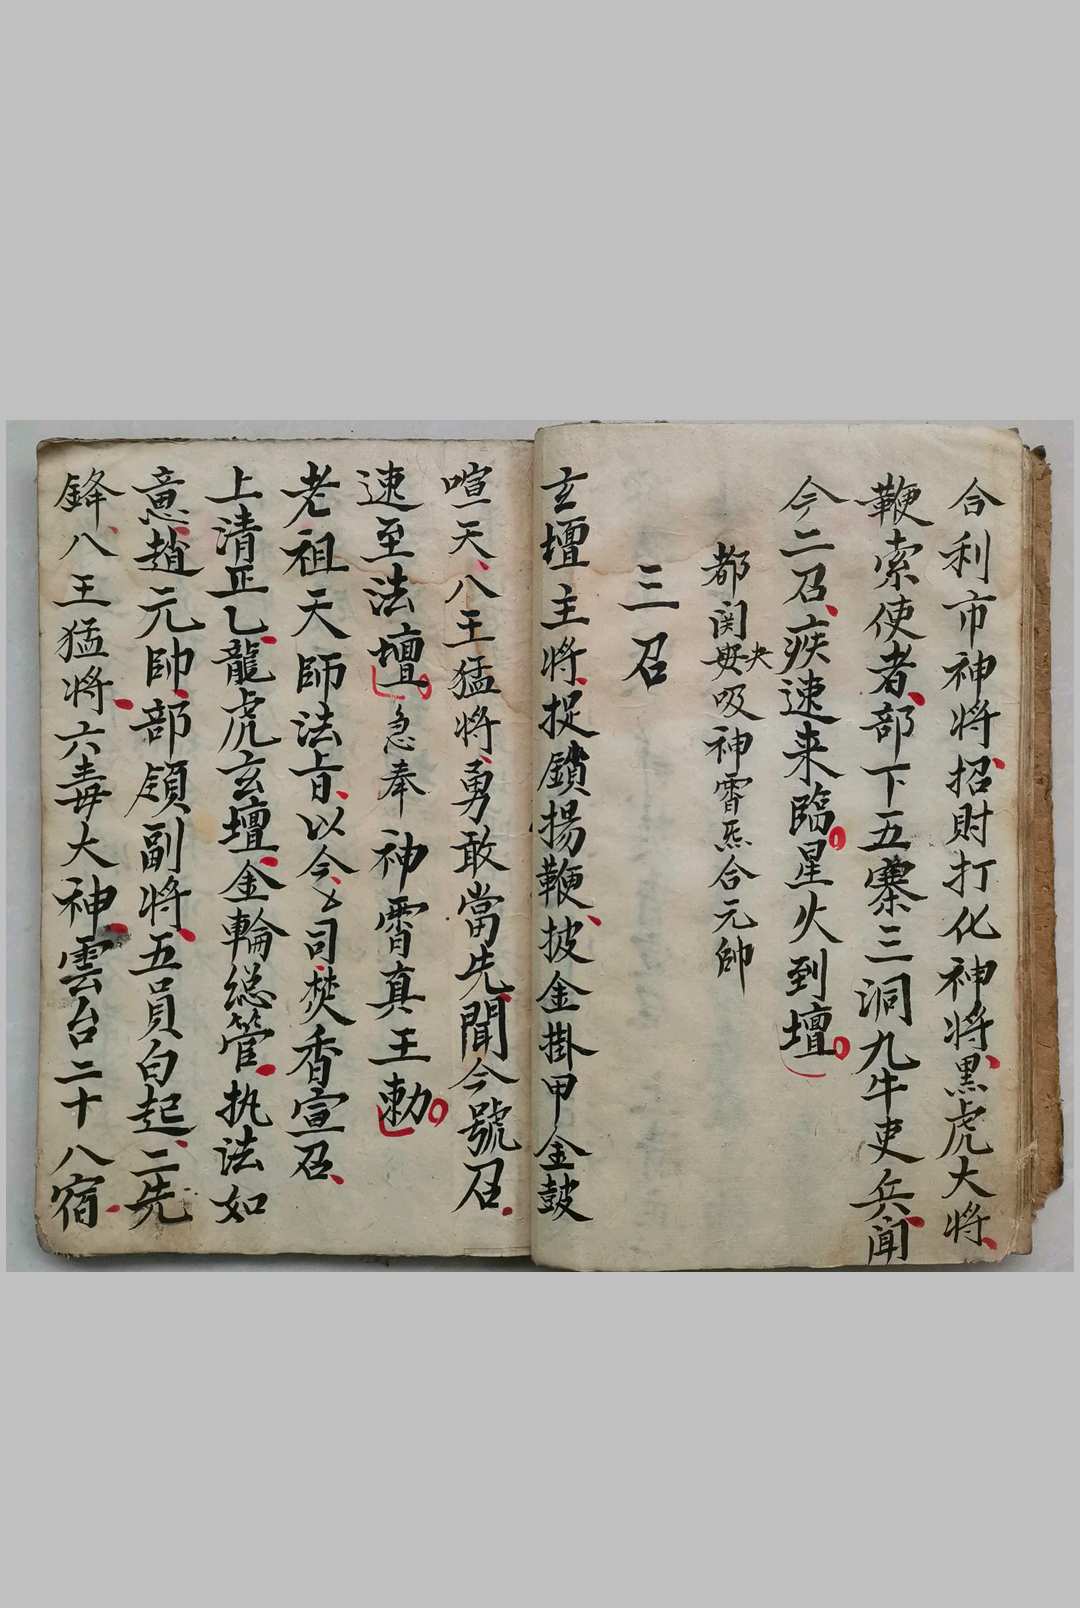 合利市神將招財打化神將黑虎大將
鞭索使者部下五寨三洞九牛吏兵闻
今二召疾速来臨星火到壇
都関吸神霄炁合元帥
三召
玄壇主將捉鎖揚鞭披金掛甲金鼓
喧天八王猛將勇敢當先聞今號召
速至法壇急奉神霄真王勅
老祖天師法旨以今司焚香宣召
上清正乙龍虎玄壇金輪総管执法如
意趙元帥部領副將五員白起二先
鋒八王猛將六毒大神雲台二十八宿